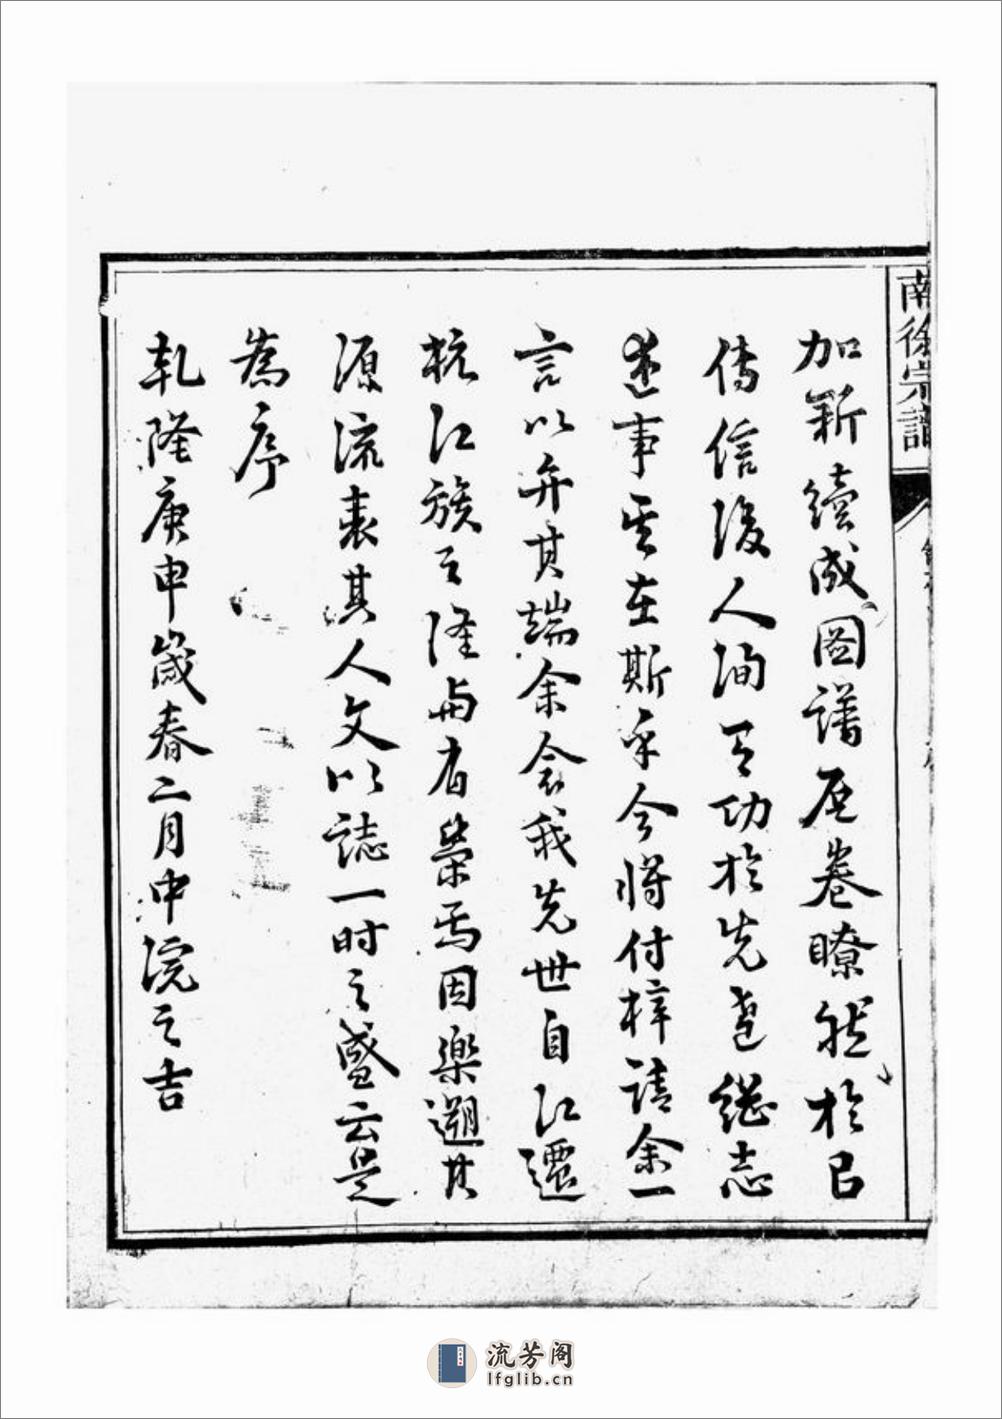 南徐宗譜
加新續成圖譜展卷瞭然於已
傳信後人洵有功於先老繼志
述事其在斯乎今將付梓請余一
言以弁其端余念我先世自江遷
杭江族之隆與有榮焉因樂遡其
源流表其人文以誌一时之盛云是
為序
乹隆庚申歲春二月中浣之吉
流芳阁
lfglib.cn